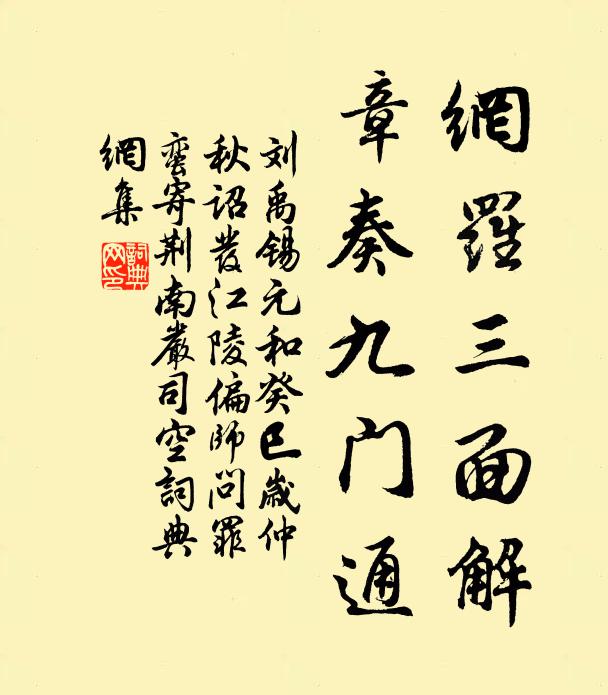 網羅三面解
章奏九門通
刘禹锡元和癸巳歲仲
秋詔發江陵偏師問罪
蠻寄荆南嚴司空詞典
網集
詞典網印